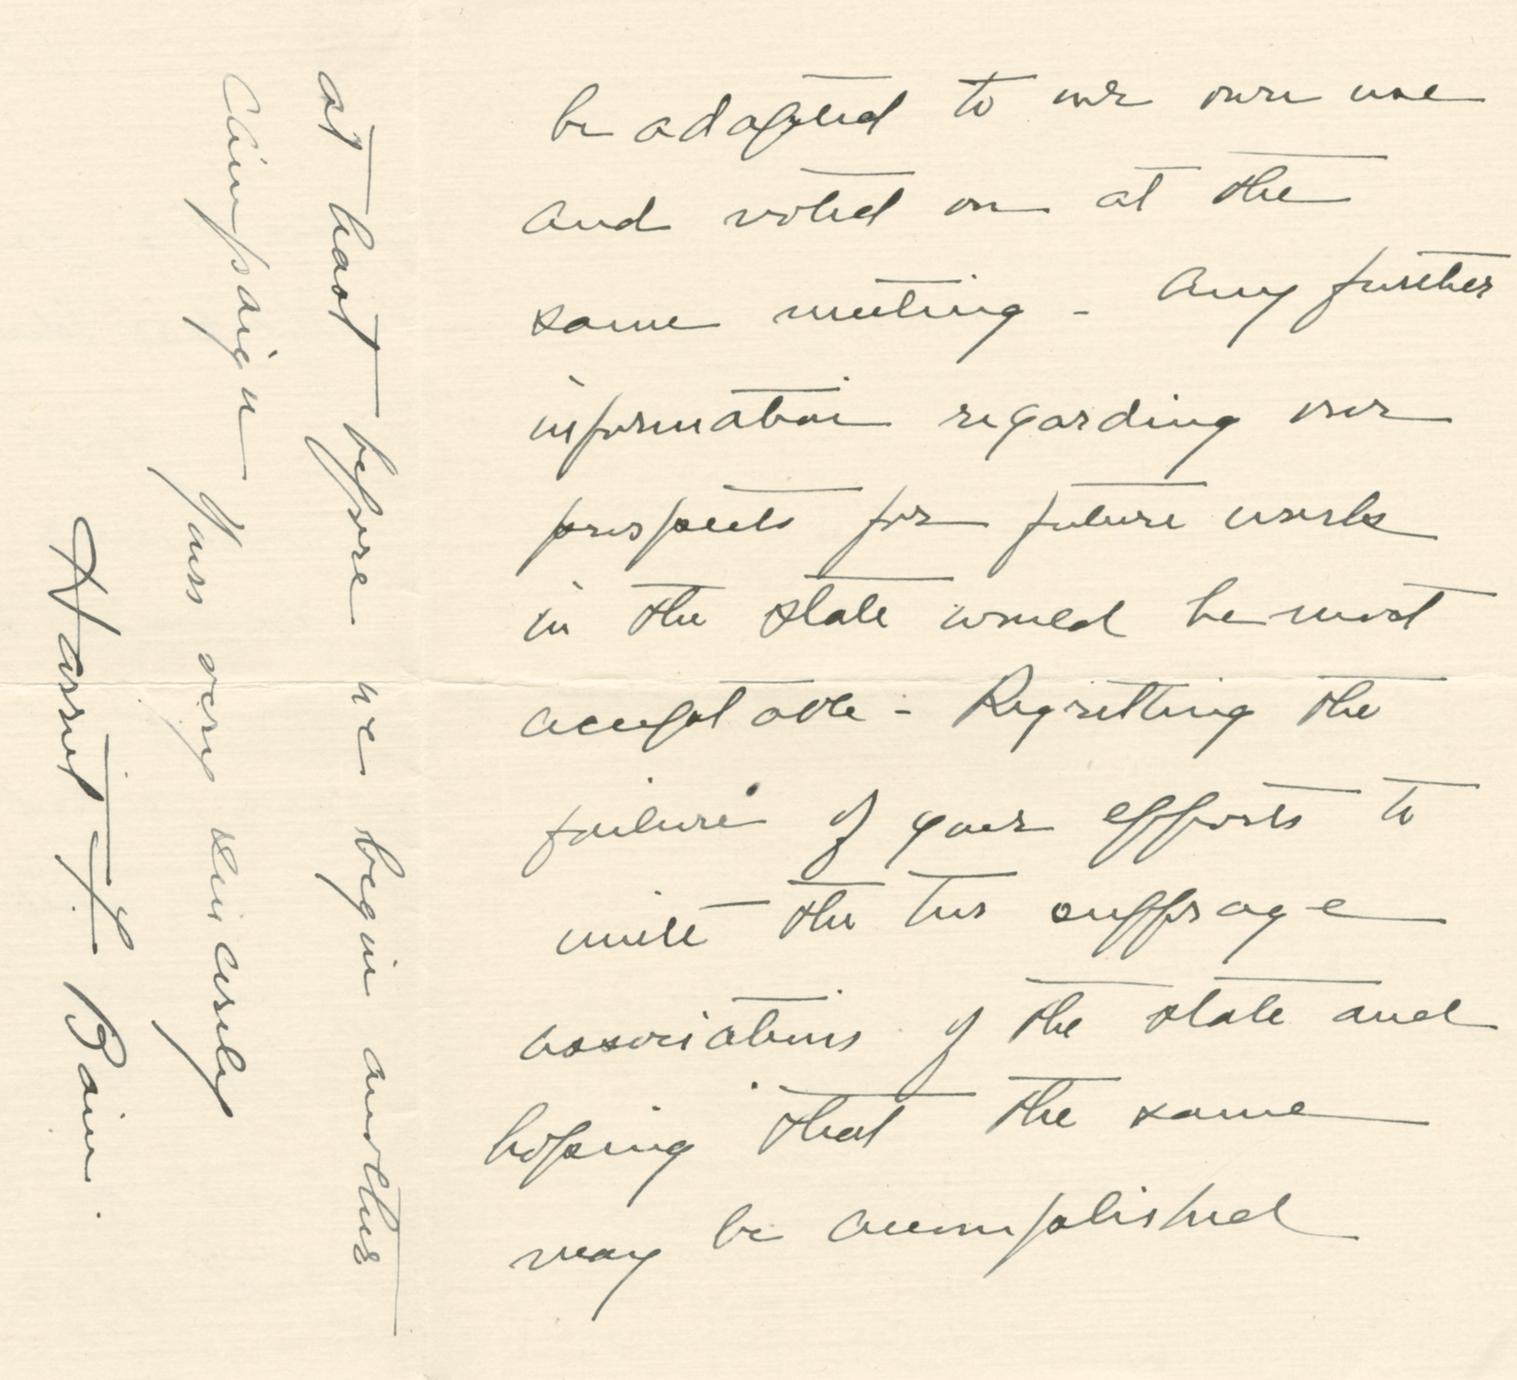 be adapted to our own use
and voted on at the
same meeting - Any further
information regarding our
prospects for future work
in the state would be most
acceptable - Regretting the
failure of your efforts to
unite the two suffrage
associations of the state and
hoping that the same
may be accomplished
at least before we begin another
Campaign Yours very sincerely
Harriet F. Bain.